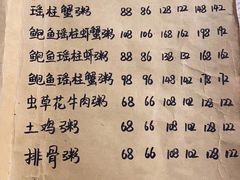 瑶柱蟹粥 88 86 128 122 148 142
鲍鱼瑶柱虾蟹粥 108 106 168 162 198 192
鲍鱼瑶柱虾粥 88 86 138 132 168 162
鲍鱼瑶柱蟹粥 98 96 148 142 178 172
虫草花牛肉粥 68 66 108 102 128 122
土鸡粥 68 66 108 102 128 122
排骨粥 68 66 108 102 128 122